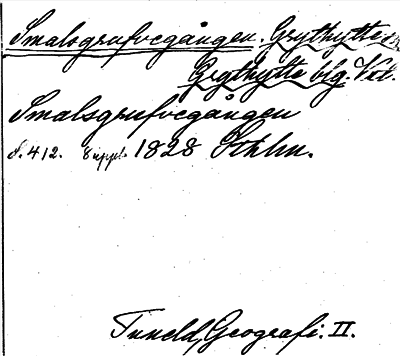 Smalsgrufvegången. Grythytte
Grythytte blg. Vstl.
Smalsgrufvegången
s. 412. 8 uppl. 1828 Sthlm.
Tuneld, Geografi. II.